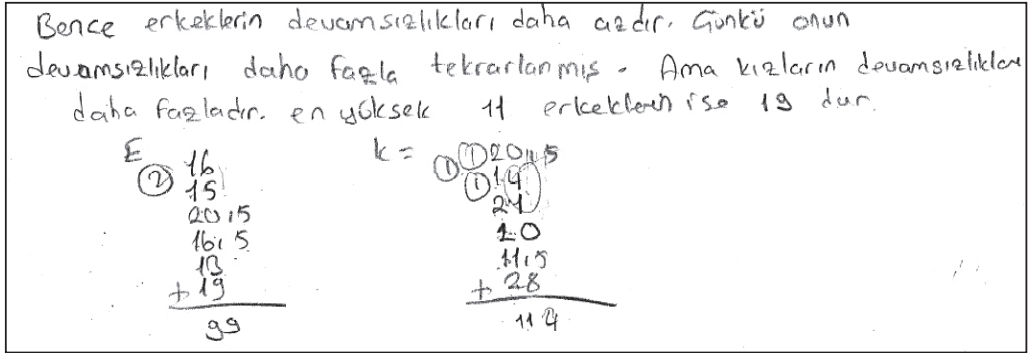 Bence erkeklerin devamsızlıkları daha azdır. Günkü onun
devamsızlıkları daha fazla tekrarlanmış. Ama kızların devamsızlıkları
daha fazladır. en yüksek 11 erkeklerin ise 19 dur.
E k =
② 16 ① ① 20,5
15 ① 14
20,5 24
16,5 20
13 11,5
+ 19 + 28
99 114